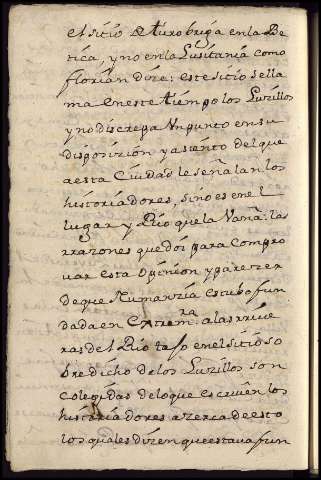 el sitio de turobriga en la Be
tica, y no en la Lusitania como
florian dize: este sitio se lla
ma en este tiempo los Luzillos
y no discrepa Un punto en su
disposizion y asiento del que
a esta Ciudad le señalan los
historiadores, sino es en el
lugar y Rio que la Vaña: las
rrazones que doi para Compro
uar esta Opinion y parezer
de que Numanzia estubo fun
dada en Extrem.ra a las rriue
ras del Rio tajo en el sitio so
bre dicho de los Luzillos son
Colegidas de lo que escriuen los
historiadores azerca de esto
los quales dizen que estaua fun